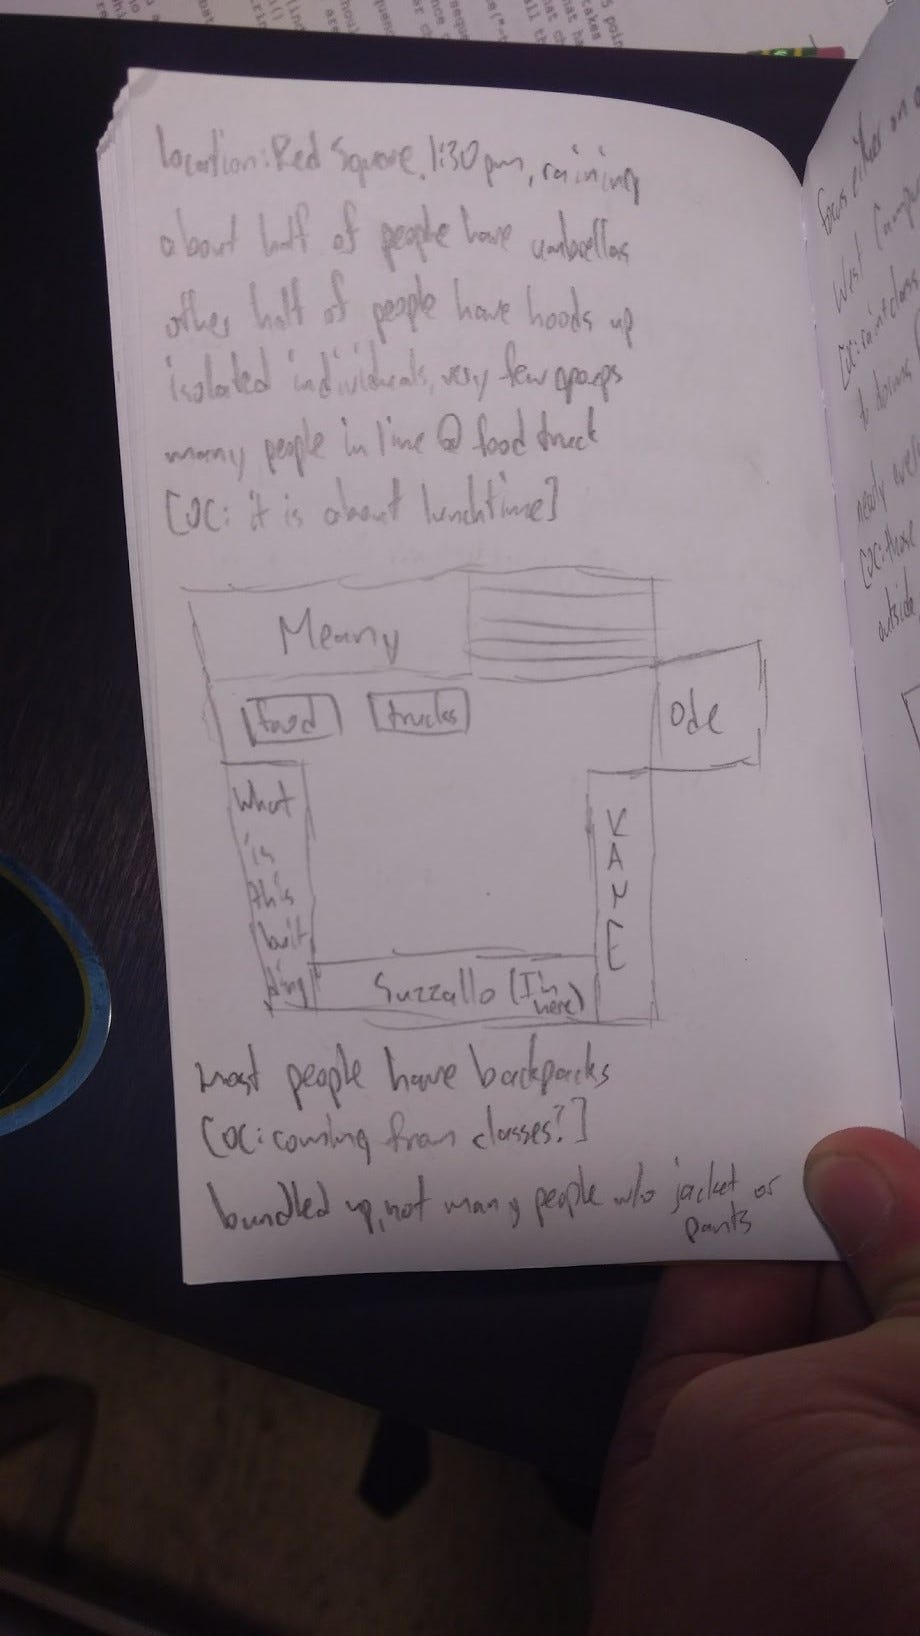 Location: Red Square, 1:30 pm, raining
about half of people have umbrellas
other half of people have hoods up
isolated individuals, very few groups
many people in line @ food truck
[OC: it is about lunchtime]
Meany
food trucks
Ode
What
is
this
buil
ding
K
A
N
E
Suzzallo (I'm
here)
most people have backpacks
[OC: coming from classes?]
bundled up, not many people w/o jacket or
pants
focus either on
West Campus
[OC:
to
nearly
[OC: those
outside